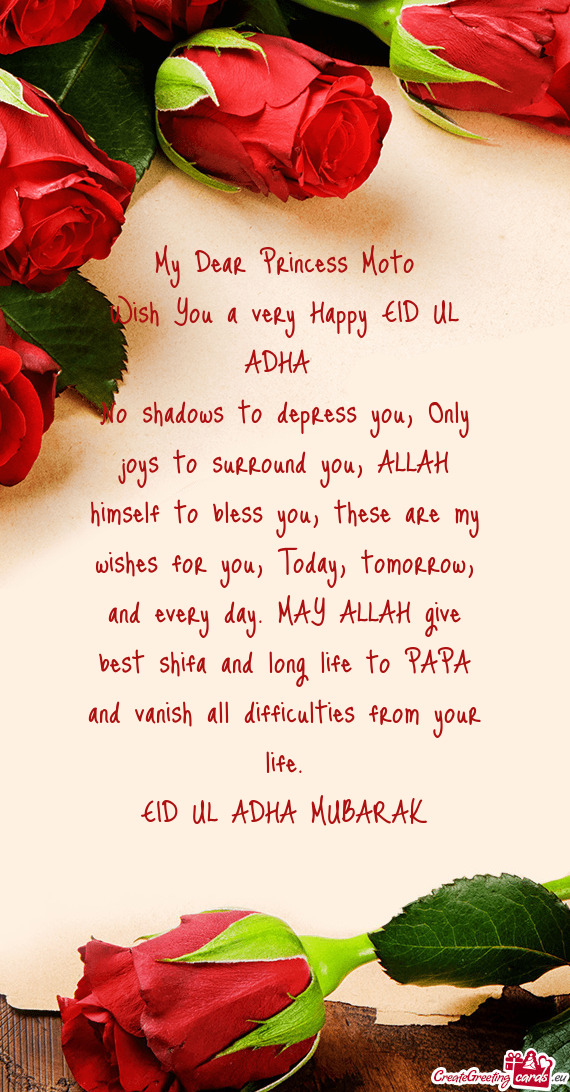 My Dear Princess Moto
Wish You a very Happy EID UL
ADHA
No shadows to depress you, Only
joys to surround you, ALLAH
himself to bless you, these are my
wishes for you, Today, tomorrow,
and every day. MAY ALLAH give
best shifa and long life to PAPA
and vanish all difficulties from your
life.
EID UL ADHA MUBARAK
CreateGreeting cards.eu